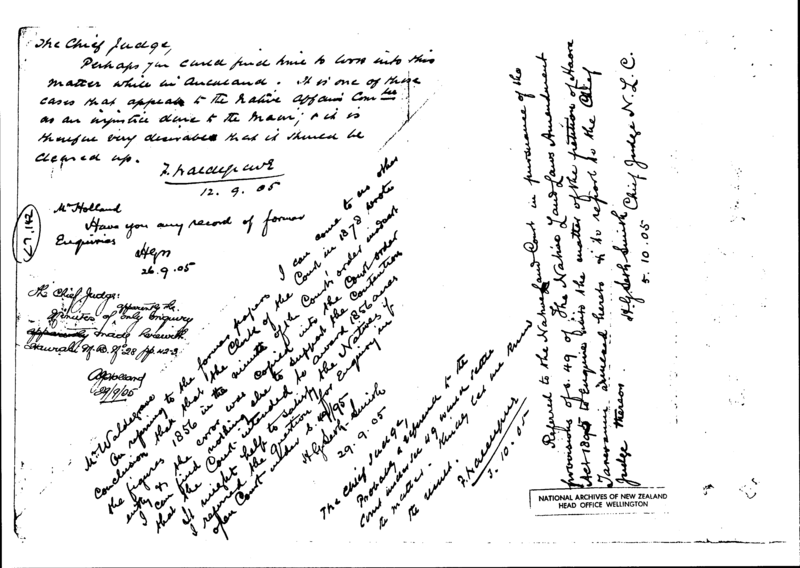 The Chief Judge,
Perhaps you could find time to look into this
matter while in Auckland. It is one of those
cases that appeals to the Native Affairs Comtee
as an injustice done to the Maori; & it is
therefore very desirable that it should be
cleared up.
F. Waldegrave
12. 9. 05
Mr Holland
Have you any record of former
Enquiries
HGSS
26.9.05
The Chief Judge:
apparently the
Minutes of only Enquiry
apparently made herewith
Hauraki M.B. No 28 pp. 42-3
Holland
29/9/05
Mr Waldegrave
On referring to the former papers I can come to no other
conclusion that that the Clerk of the Court in 1878 wrote
the figures 1856 in the minute of the Court's order instead
entry & the error was copied into the Court order
I can find nothing else to support the contention
that the Court intended to award 1856 acres
It might help to satisfy the Natives if
I referred the question for Enquiry in
open Court under S. 49/95
H G Seth-Smith
29.9.05
The Chief Judge,
Probably a reference to the
Court under sec 49 would settle
the matter. Kindly let me know
the result.
F. Waldegrave
3. 10. 05
Referred to the Native Land Court in pursuance of the
provisions of s. 49 of The Native Land Laws Amendment
Act 1895 to Enquire into the matter of the petition of Haora
Tareranui annexed hereto & to report to the Chief
Judge thereon
H G Seth-Smith Chief Judge N. L. C.
5. 10. 05
NATIONAL ARCHIVES OF NEW ZEALAND
HEAD OFFICE WELLINGTON